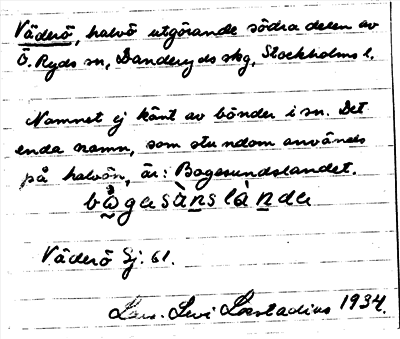 Väderö, halvö utgörande södra delen av
Ö. Ryds sn, Danderyds skg, Stockholms l.
Namnet ej känt av bönder i sn. Det
enda namn, som stundom används
på halvön, är: Bogesundslandet.
Väderö Sj. 61.
Lars Levi Læstadius 1934.